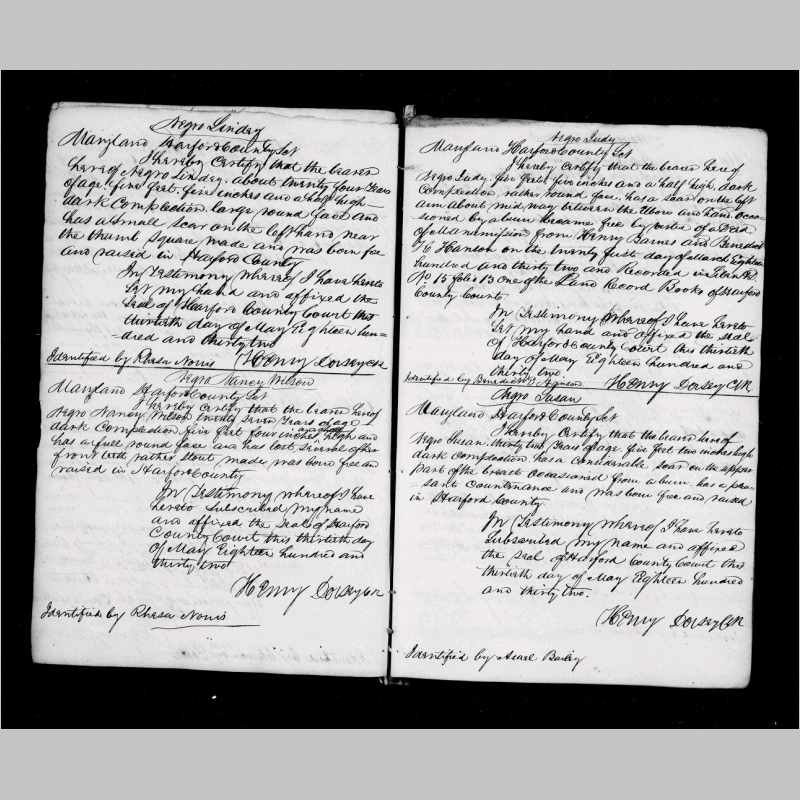 Negro Lindey
Maryland Harford County Sct
I hereby Certify that the bearer
hereof Negro Lindey about twenty four years
of age five feet five inches and a half high
dark Complection large round face and
has a small scar on the left hand near
the thumb Square made and was born free
and raised in Harford County
In Testimony whereof I have hereto
Set my hand and affixed the
Seal of Harford County Court this
thirtieth day of May Eighteen hun-
dred and thirty two
Identified by Rhesa Norris Henry Dorsey Clk
Negro Nancy Wilson
Maryland Harford County Sct
I hereby Certify that the bearer hereof
Negro Nancy Wilson twenty seven years of age
dark Complection five feet four inches and a half high and
has a full round face and has lost several of her
front teeth rather stout made was born free and
raised in Harford County
In Testimony whereof I have
hereto Subscribed my name
and affixed the Seal of Harford
County Court this thirtieth day
of May Eighteen hundred and
thirty two
Henry Dorsey Clk
Identified by Rhesa Norris
Negro Judy
Maryland Harford County Sct
I hereby Certify that the bearer hereof
Negro Judy five feet five inches and a half high, dark
Complection rather round face, has a scar on the left
arm about midway between the Elbow and hand occa-
sioned by a burn became free by virtue of a Deed
of Manumission from Henry Barnes and Benedict
H Hanson on the twenty first day of March Eighteen
hundred and thirty two and Recorded in Liber
No 15 folio 13 one of the Land Record Books of Harford
County Court
In Testimony Whereof I have hereto
Set my hand and affixed the seal
of Harford County Court this thirtieth
day of May Eighteen hundred and
thirty two.
Identified by Benedict Henry Dorsey Clk
Negro Susan
Maryland Harford County Sct
I hereby Certify that the bearer hereof
Negro Susan thirty two years of age five feet two inches high
dark complection has a Considerable scar on the upper
part of the breast occasioned from a burn has a plea-
sant Countenance and was born free and raised
in Harford County
In Testimony whereof I have hereto
Subscribed my name and affixed
the seal of Harford County Court this
thirtieth day of May Eighteen hundred
and thirty two.
Henry Dorsey Clk
Identified by Asael Bailey